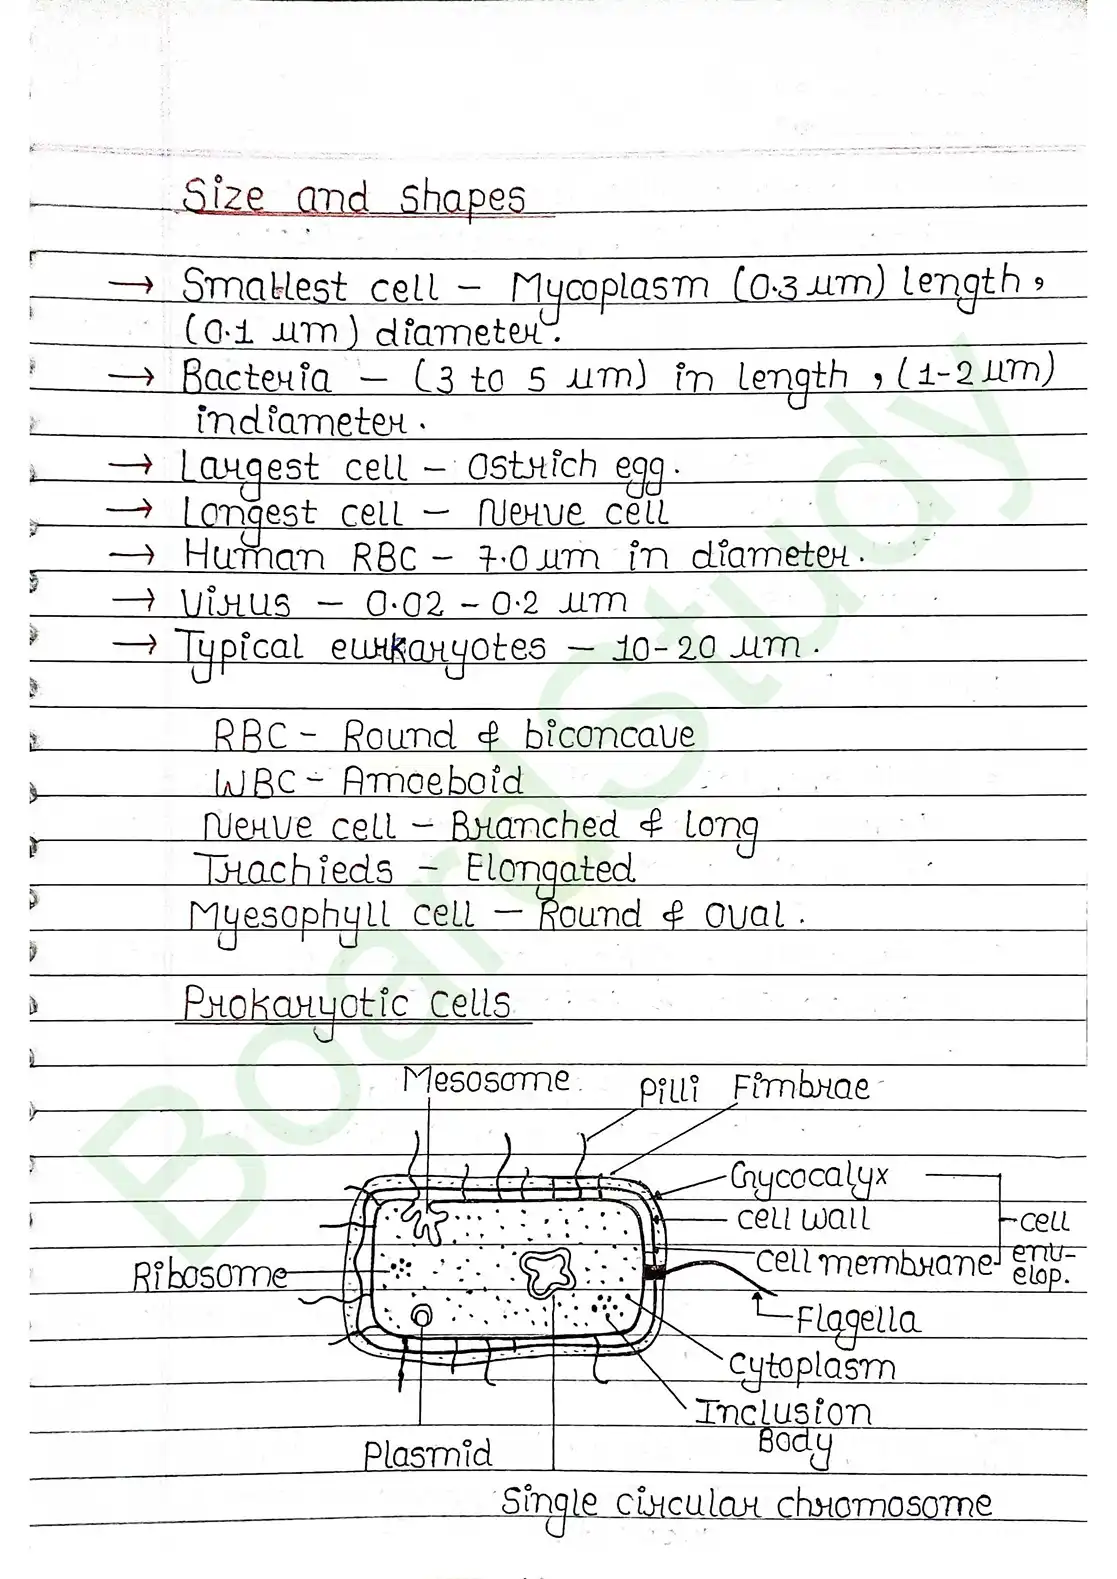 Size and shapes
→ Smallest cell – Mycoplasm (0.3 µm) length,
(0.1 µm) diameter.
→ Bacteria – (3 to 5 µm) in length, (1-2 µm)
indiameter.
→ Largest cell – Ostrich egg.
→ Longest cell – Nerve cell
→ Human RBC – 7.0 µm in diameter.
→ Virus – 0.02 - 0.2 µm
→ Typical eurkaryotes – 10-20 µm.
RBC - Round & biconcave
WBC - Amoeboid
Nerve cell - Branched & long
Trachieds - Elongated
Myesophyll cell – Round & oval.
Prokaryotic cells
Mesosome
Pilli Fimbrae
Glycocalyx
cell wall
cell membrane
cell
env-
elop.
Ribosome
Flagella
Cytoplasm
Inclusion
Body
Plasmid
Single circular chromosome
BoardStudy